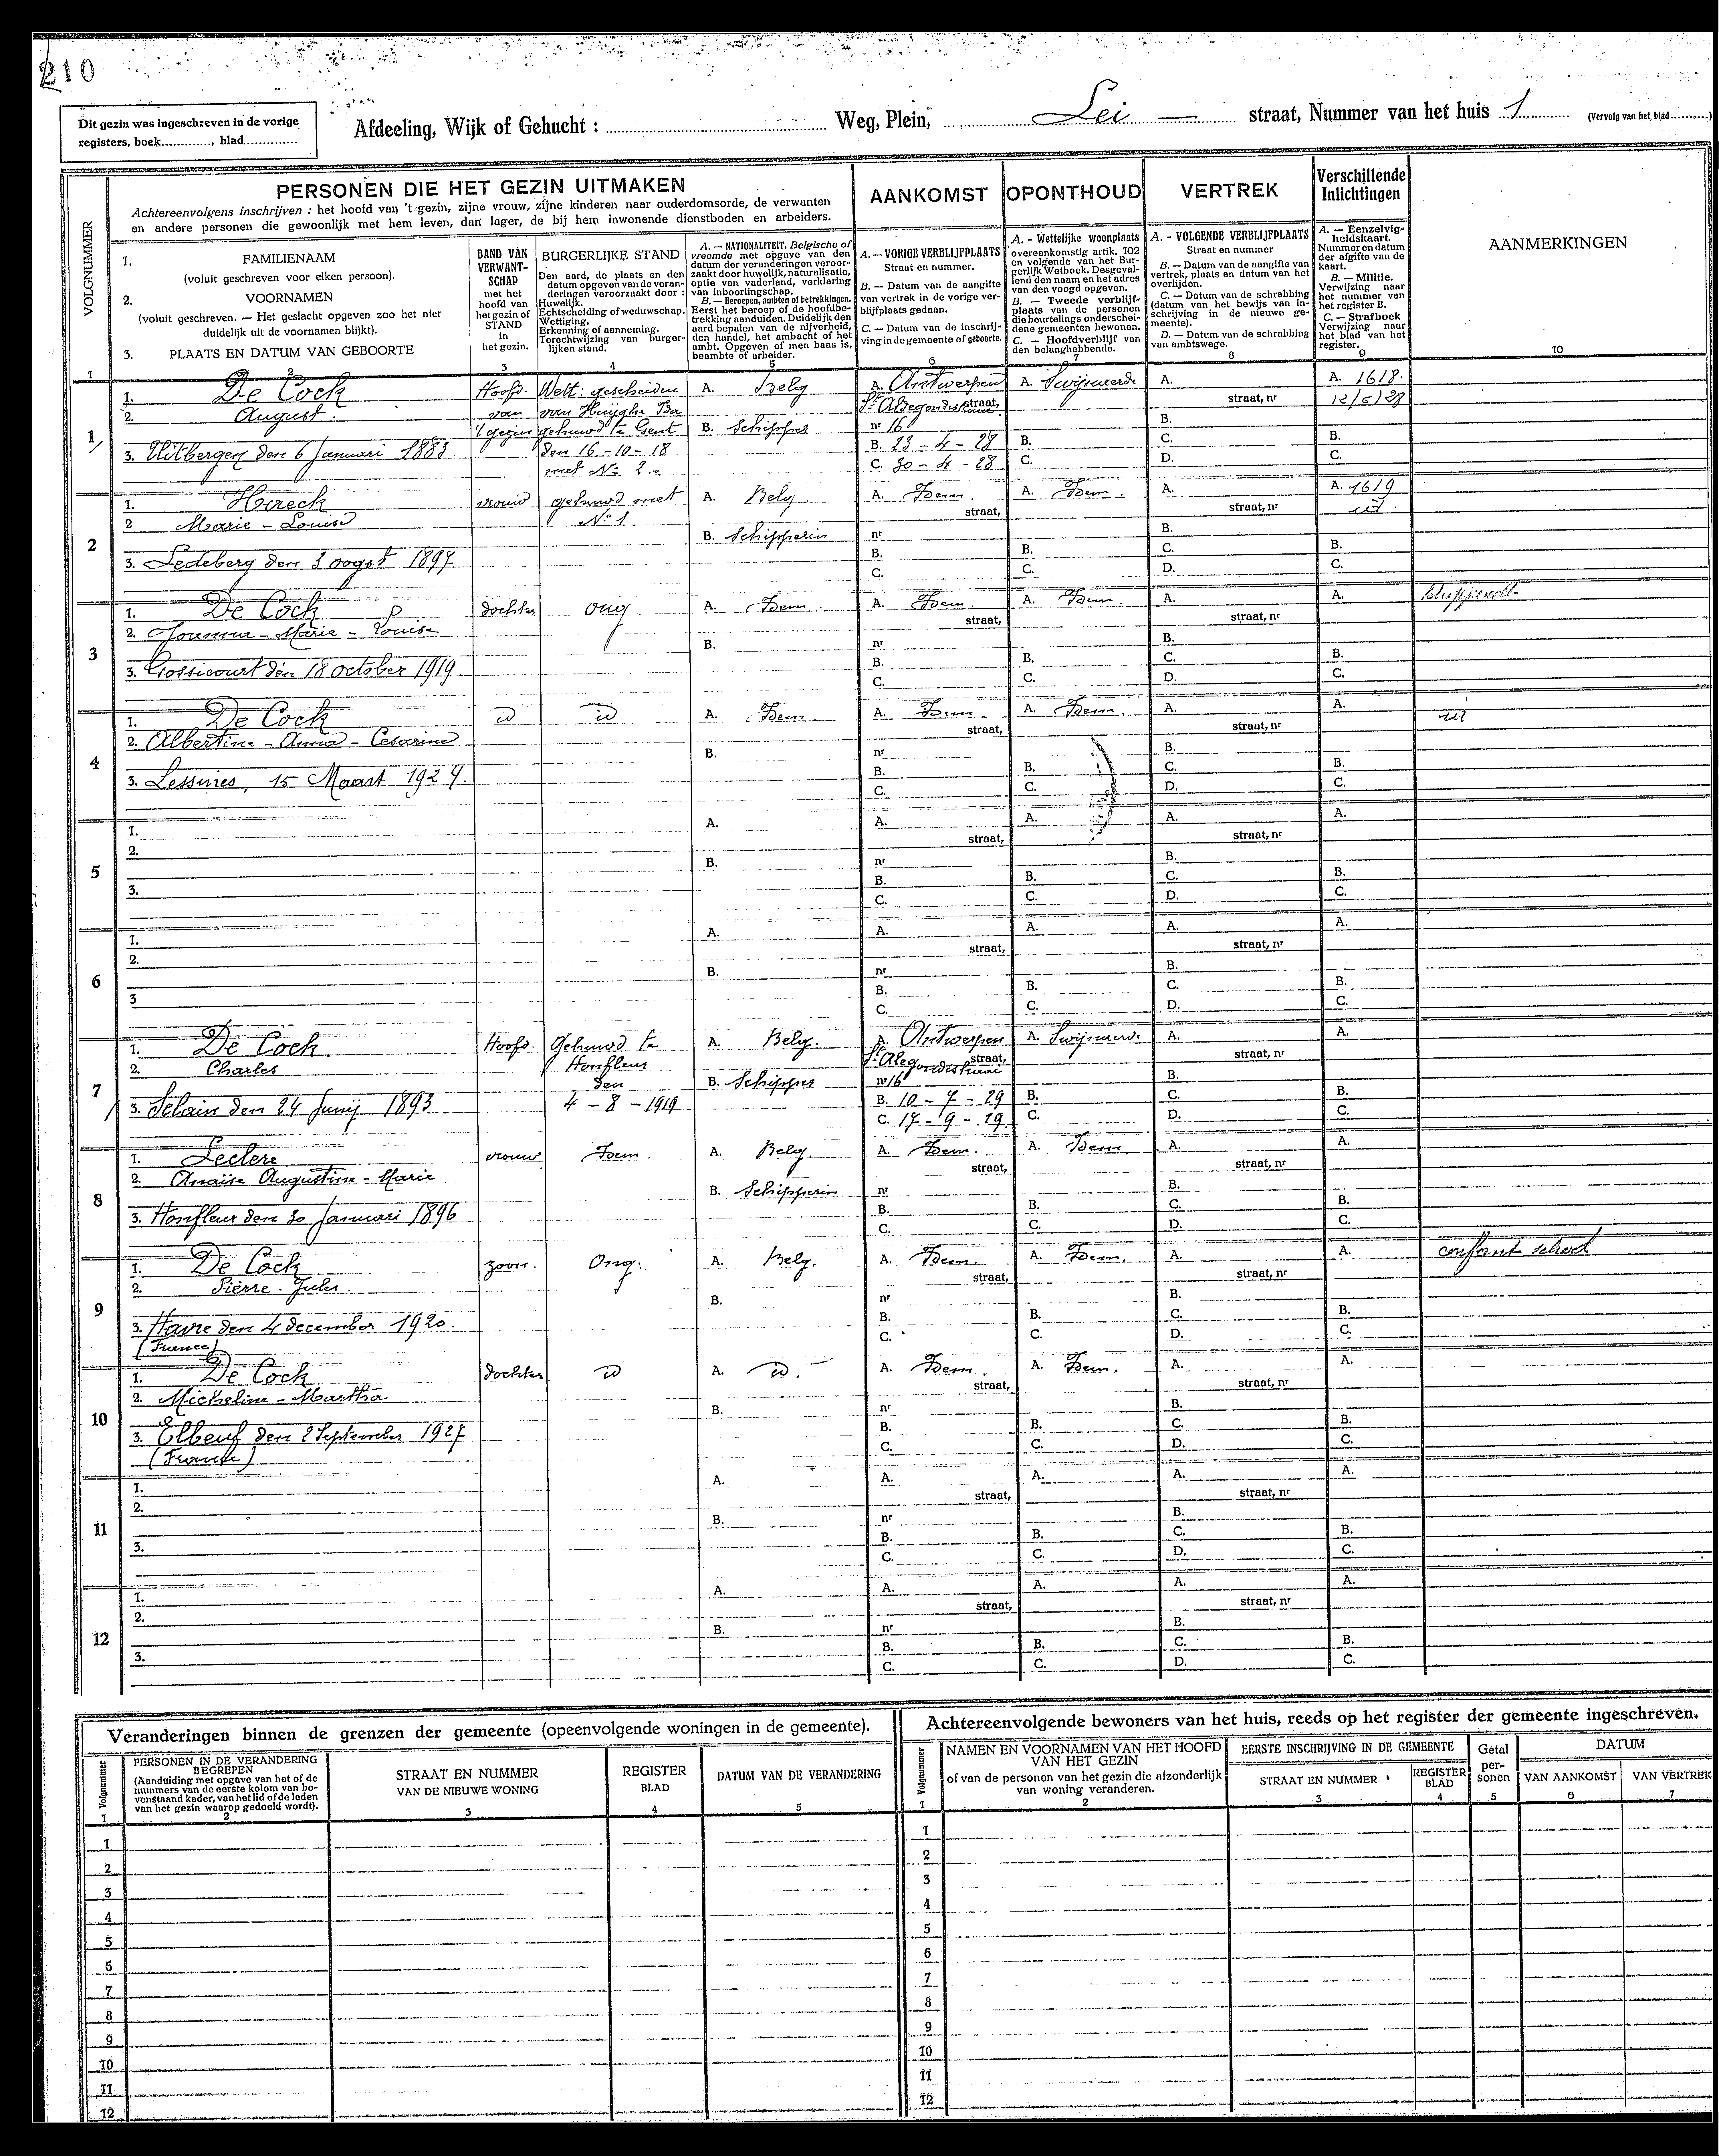 210
Dit gezin was ingeschreven in de vorige
registers, boek............, blad..............
Afdeeling, Wijk of Gehucht : ............ Weg, Plein, ........ Lei — ........ straat, Nummer van het huis 1 ........ (Vervolg van het blad...........)
VOLGNUMMER
PERSONEN DIE HET GEZIN UITMAKEN
Achtereenvolgens inschrijven : het hoofd van 't gezin, zijne vrouw, zijne kinderen naar ouderdomsorde, de verwanten
en andere personen die gewoonlijk met hem leven, dan lager, de bij hem inwonende dienstboden en arbeiders.
AANKOMST
OPONTHOUD
VERTREK
Verschillende
Inlichtingen
AANMERKINGEN
1. FAMILIENAAM
(voluit geschreven voor elken persoon).
2. VOORNAMEN
(voluit geschreven. — Het geslacht opgeven zoo het niet
duidelijk uit de voornamen blijkt).
3. PLAATS EN DATUM VAN GEBOORTE
BAND VAN
VERWANT-
SCHAP
met het
hoofd van
het gezin of
STAND
in
het gezin.
BURGERLIJKE STAND
Den aard, de plaats en den
datum opgeven van de veran-
deringen veroorzaakt door :
Huwelijk.
Echtscheiding of weduwschap.
Wettiging.
Erkenning of aanneming.
Terechtwijzing van burger-
lijken stand.
A. — NATIONALITEIT. Belgische of
vreemde met opgave van den
datum der veranderingen veroor-
zaakt door huwelijk, naturalisatie,
optie van vaderland, verklaring
van inboorlingschap.
B. — Beroepen, ambten of betrekkingen.
Eerst het beroep of de hoofdbe-
trekking aanduiden. Duidelijk den
aard bepalen van de nijverheid,
den handel, het ambacht of het
ambt. Opgeven of men baas is,
beambte of arbeider.
A. — VORIGE VERBLIJFPLAATS
Straat en nummer.
B. — Datum van de aangifte
van vertrek in de vorige ver-
blijfplaats gedaan.
C. — Datum van de inschrij-
ving in de gemeente of geboorte.
A. - Wettelijke woonplaats
overeenkomstig artik. 102
en volgende van het Bur-
gerlijk Wetboek. Desgeval-
lend den naam en het adres
van den voogd opgeven.
B. — Tweede verblijf-
plaats van de personen
die beurtelings onderschei-
dene gemeenten bewonen.
C. — Hoofdverblijf van
den belanghebbende.
A. - VOLGENDE VERBLIJFPLAATS
Straat en nummer
B. — Datum van de aangifte van
vertrek, plaats en datum van het
overlijden.
C. — Datum van de schrabbing
(datum van het bewijs van in-
schrijving in de nieuwe ge-
meente).
D. — Datum van de schrabbing
van ambtswege.
A. — Eenzelvig-
heidskaart.
Nummer en datum
der afgifte van de
kaart.
B. — Militie.
Verwijzing naar
het nummer van
het register B.
C. — Strafboek
Verwijzing naar
het blad van het
register.
1 2 3 4 5 6 7 8 9 10
1. De Cock Hoofd Wett: gescheiden A. Belg A. Antwerpen A. Swijnaerde A. A. 1618.
2. August. van van Huyghe straat, straat, nr 12/5/28
1 't gezin gehuwd te Gent B. Schipper nr 16 B.
3. Uitbergen den 6 Januari 1883 den 16-10-18 B. 23-4-28 B. C. B.
met No 2.- C. 30-4-28 C. D. C.
1. vrouw gehuwd met A. Belg A. Idem A. Idem. A. A. 1619
2 Marie - Louise No 1 straat, straat, nr id.
2 B. Schipperin nr B.
3. Ledeberg den 3 oogst 1897 B. B. C. B.
C. C. D. C.
1. De Cock dochter ong A. Idem. A. Idem. A. Idem. A. A.
2. Marie - Louise straat, straat, nr
3 B. nr B.
3. Gossicourt den 18 october 1919 B. B. C. B.
C. C. D. C.
1. De Cock id id A. Idem. A. Idem. A. Idem. A. A. id
2. Albertine - Anna - Cesarine straat, straat, nr
4 B. nr B.
3. Lessines, 15 Maart 1927. B. B. C. B.
C. C. D. C.
1. A. A. A. A. A.
2. straat, straat, nr
5 B. nr B.
3. B. B. C. B.
C. C. D. C.
1. A. A. A. A. A.
2. straat, straat, nr
6 B. nr B.
3 B. B. C. B.
C. C. D. C.
1. De Cock Hoofd. Gehuwd te A. Belg. A. Antwerpen A. Swijnaerde A. A.
2. Charles Honfleur straat, straat, nr
7 den B. Schipper nr 16 B.
3. Selain den 24 Junij 1893 4-8-1919 B. 10-7-29 B. C. B.
C. 17-9-29 C. D. C.
1. Leclerc vrouw Idem. A. Belg. A. Idem. A. Idem. A. A.
2. Anaïse Augustine - Marie straat, straat, nr
8 B. Schipperin nr B.
3. Honfleur den 30 Januari 1896 B. B. C. B.
C. C. D. C.
1. De Cock zoon. Ong. A. Belg. A. Idem. A. Idem. A. A.
2. Pièrre - Jules straat, straat, nr
9 B. nr B.
3. Havre den 4 december 1920. B. B. C. B.
(France) C. C. D. C.
1. De Cock dochter id A. id. A. Idem. A. Idem. A. A.
2. Micheline - Martha straat, straat, nr
10 B. nr B.
3. Elbeuf den 2 September 1927 B. B. C. B.
(France) C. C. D. C.
1. A. A. A. A. A.
2. straat, straat, nr
11 B. nr B.
3. B. B. C. B.
C. C. D. C.
1. A. A. A. A. A.
2. straat, straat, nr
12 B. nr B.
3. B. B. C. B.
C. C. D. C.
Veranderingen binnen de grenzen der gemeente (opeenvolgende woningen in de gemeente).
Volgnummer
PERSONEN IN DE VERANDERING
BEGREPEN
(Aanduiding met opgave van het of de
nummers van de eerste kolom van bo-
venstaand kader, van het lid of de leden
van het gezin waarop gedoeld wordt).
STRAAT EN NUMMER
VAN DE NIEUWE WONING
REGISTER
BLAD
DATUM VAN DE VERANDERING
1 2 3 4 5
1
2
3
4
5
6
7
8
9
10
11
12
Achtereenvolgende bewoners van het huis, reeds op het register der gemeente ingeschreven.
Volgnummer
NAMEN EN VOORNAMEN VAN HET HOOFD
VAN HET GEZIN
of van de personen van het gezin die afzonderlijk
van woning veranderen.
EERSTE INSCHRIJVING IN DE GEMEENTE
STRAAT EN NUMMER
REGISTER
BLAD
Getal
per-
sonen
DATUM
VAN AANKOMST
VAN VERTREK
1 2 3 4 5 6 7
1
2
3
4
5
6
7
8
9
10
11
12